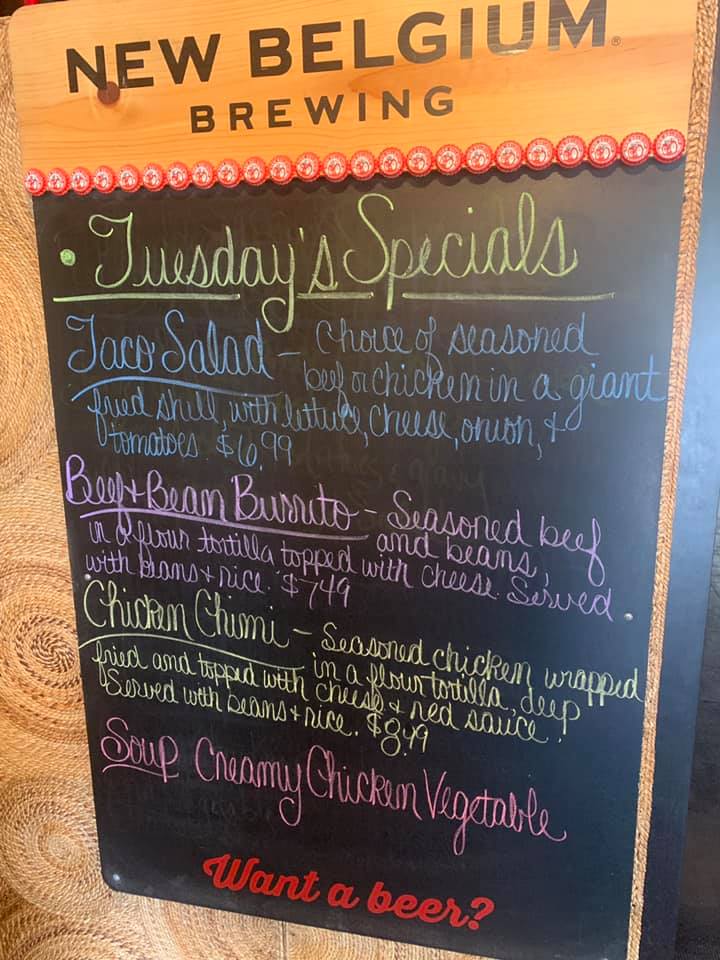 NEW BELGIUM®
BREWING
• Tuesday's Specials
Taco Salad - Choice of seasoned
beef or chicken in a giant
fried shell, with lettuce, cheese, onion, +
tomatoes. $6.99
Beef + Bean Burrito - Seasoned beef
and beans,
in a flour tortilla topped with cheese. Served
with beans + rice. $7.49
Chicken Chimi - Seasoned chicken wrapped
in a flour tortilla, deep
fried and topped with cheese + red sauce.
Served with beans + rice. $8.49
Soup Creamy Chicken Vegetable
Want a beer?